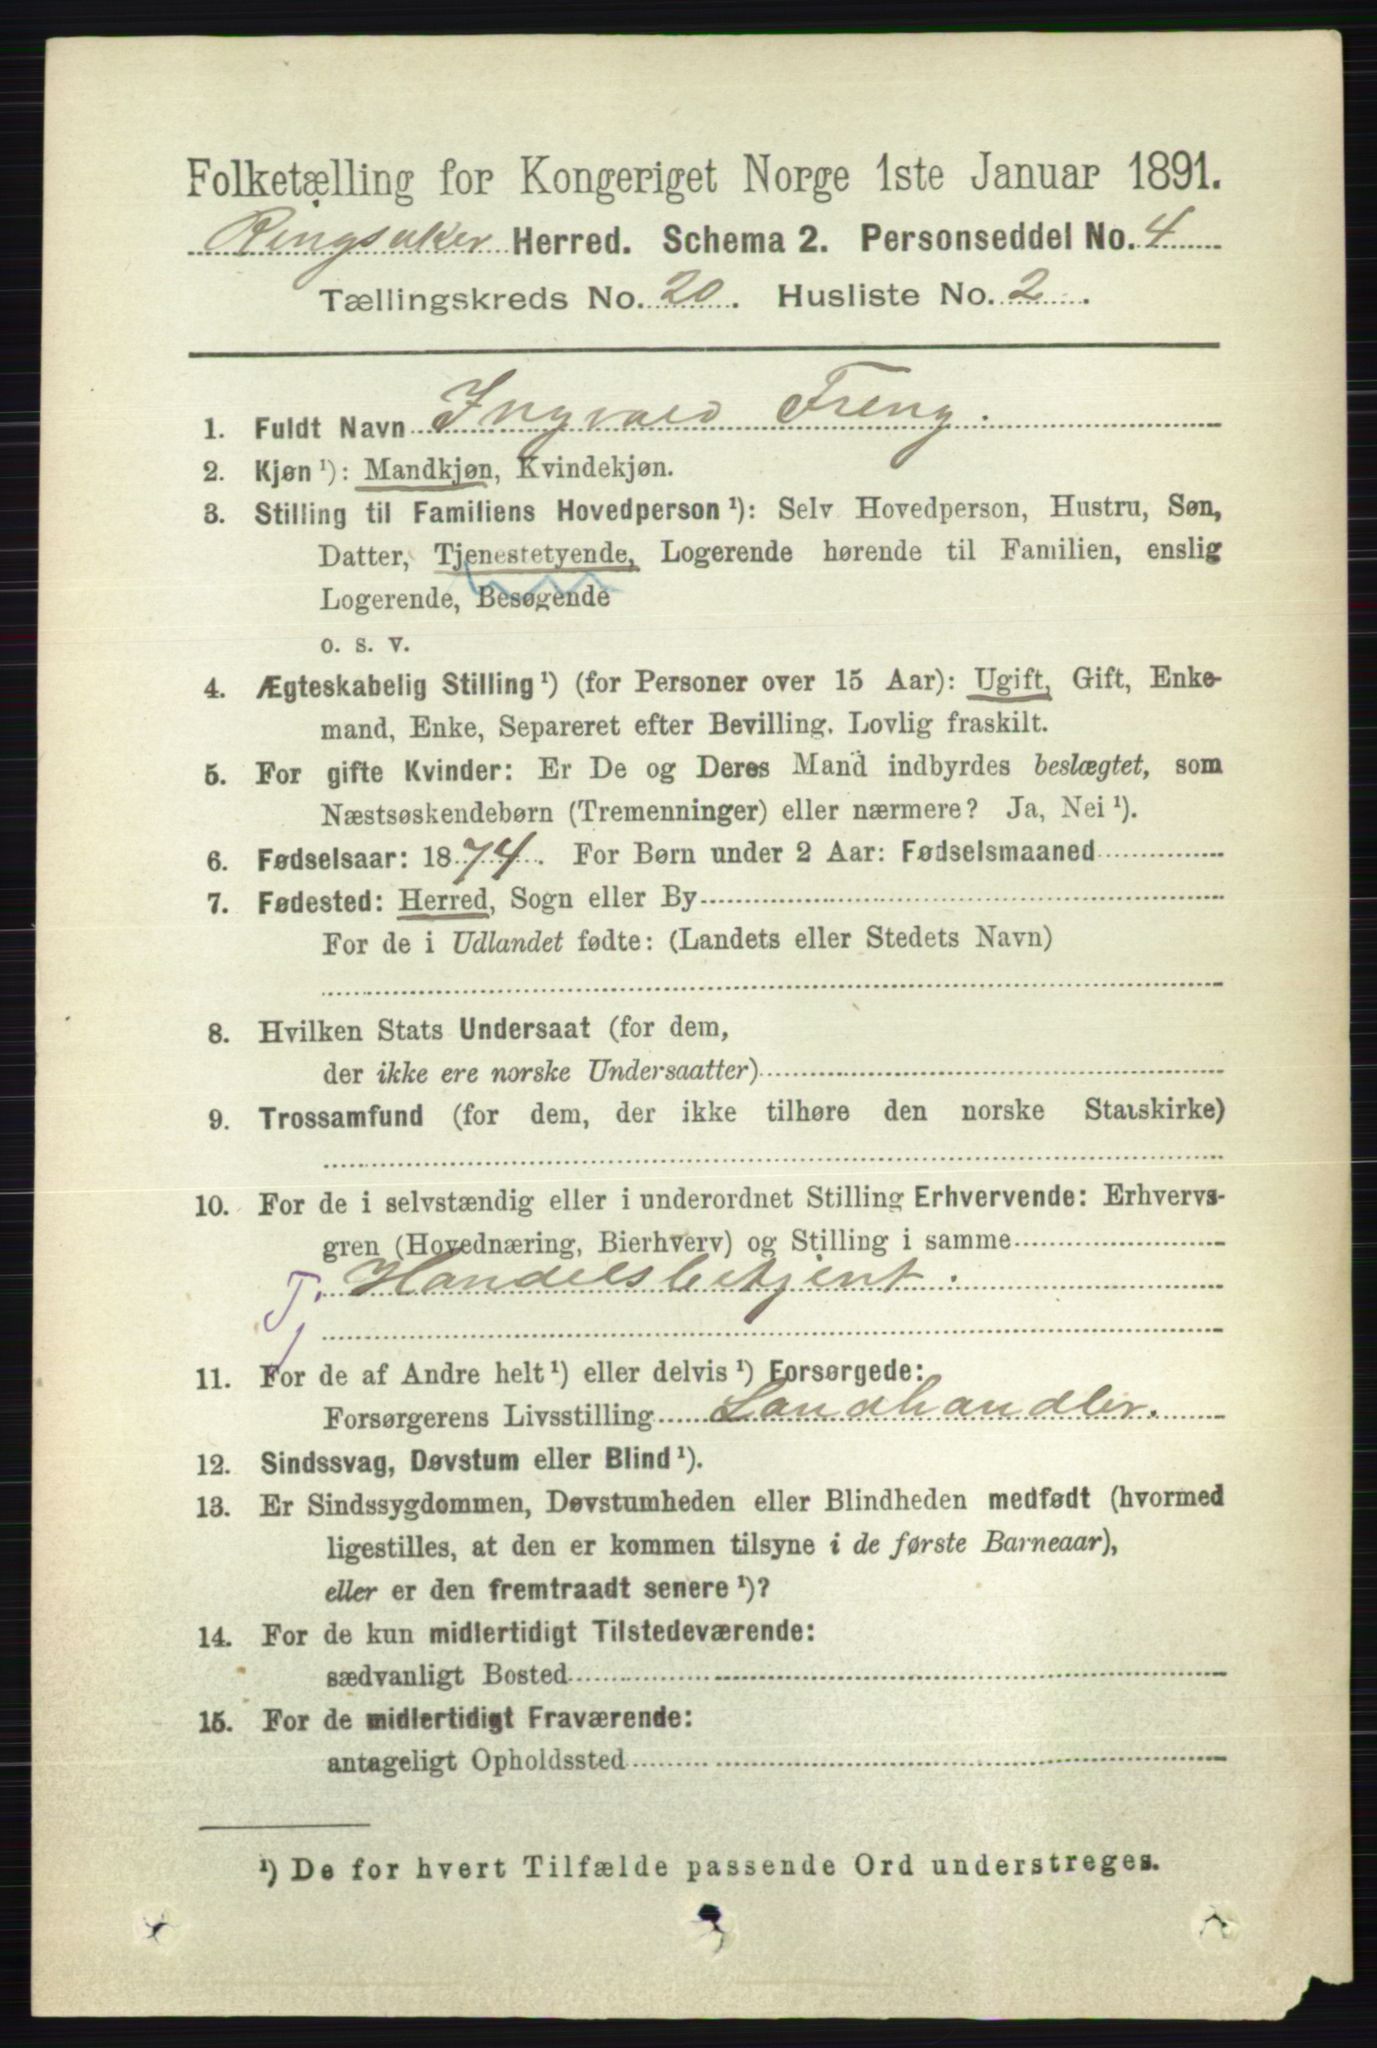 Folketælling for Kongeriget Norge 1ste Januar 1891.
Ringsaker Herred. Schema 2. Personseddel No. 4
Tællingskreds No. 20. Husliste No. 2.
1. Fuldt Navn Ingvald Freng.
2. Kjøn ¹): Mandkjøn, Kvindekjøn.
3. Stilling til Familiens Hovedperson ¹): Selv Hovedperson, Hustru, Søn,
Datter, Tjenestetyende, Logerende hørende til Familien, enslig
Logerende, Besøgende
o. s. v.
4. Ægteskabelig Stilling ¹) (for Personer over 15 Aar): Ugift, Gift, Enke-
mand, Enke, Separeret efter Bevilling. Lovlig fraskilt.
5. For gifte Kvinder: Er De og Deres Mand indbyrdes beslægtet, som
Næstsøskendebørn (Tremenninger) eller nærmere? Ja, Nei ¹).
6. Fødselsaar: 1874. For Børn under 2 Aar: Fødselsmaaned
7. Fødested: Herred, Sogn eller By
For de i Udlandet fødte: (Landets eller Stedets Navn)
8. Hvilken Stats Undersaat (for dem,
der ikke ere norske Undersaatter)
9. Trossamfund (for dem, der ikke tilhøre den norske Statskirke)
10. For de i selvstændig eller i underordnet Stilling Erhvervende: Erhvervs-
gren (Hovednæring, Bierhverv) og Stilling i samme
T. Handelsbetjent.
11. For de af Andre helt ¹) eller delvis ¹) Forsørgede:
Forsørgerens Livsstilling Landhandler.
12. Sindssvag, Døvstum eller Blind ¹).
13. Er Sindssygdommen, Døvstumheden eller Blindheden medfødt (hvormed
ligestilles, at den er kommen tilsyne i de første Barneaar),
eller er den fremtraadt senere ¹)?
14. For de kun midlertidigt Tilstedeværende:
sædvanligt Bosted
15. For de midlertidigt Fraværende:
antageligt Opholdssted
¹) De for hvert Tilfælde passende Ord understreges.